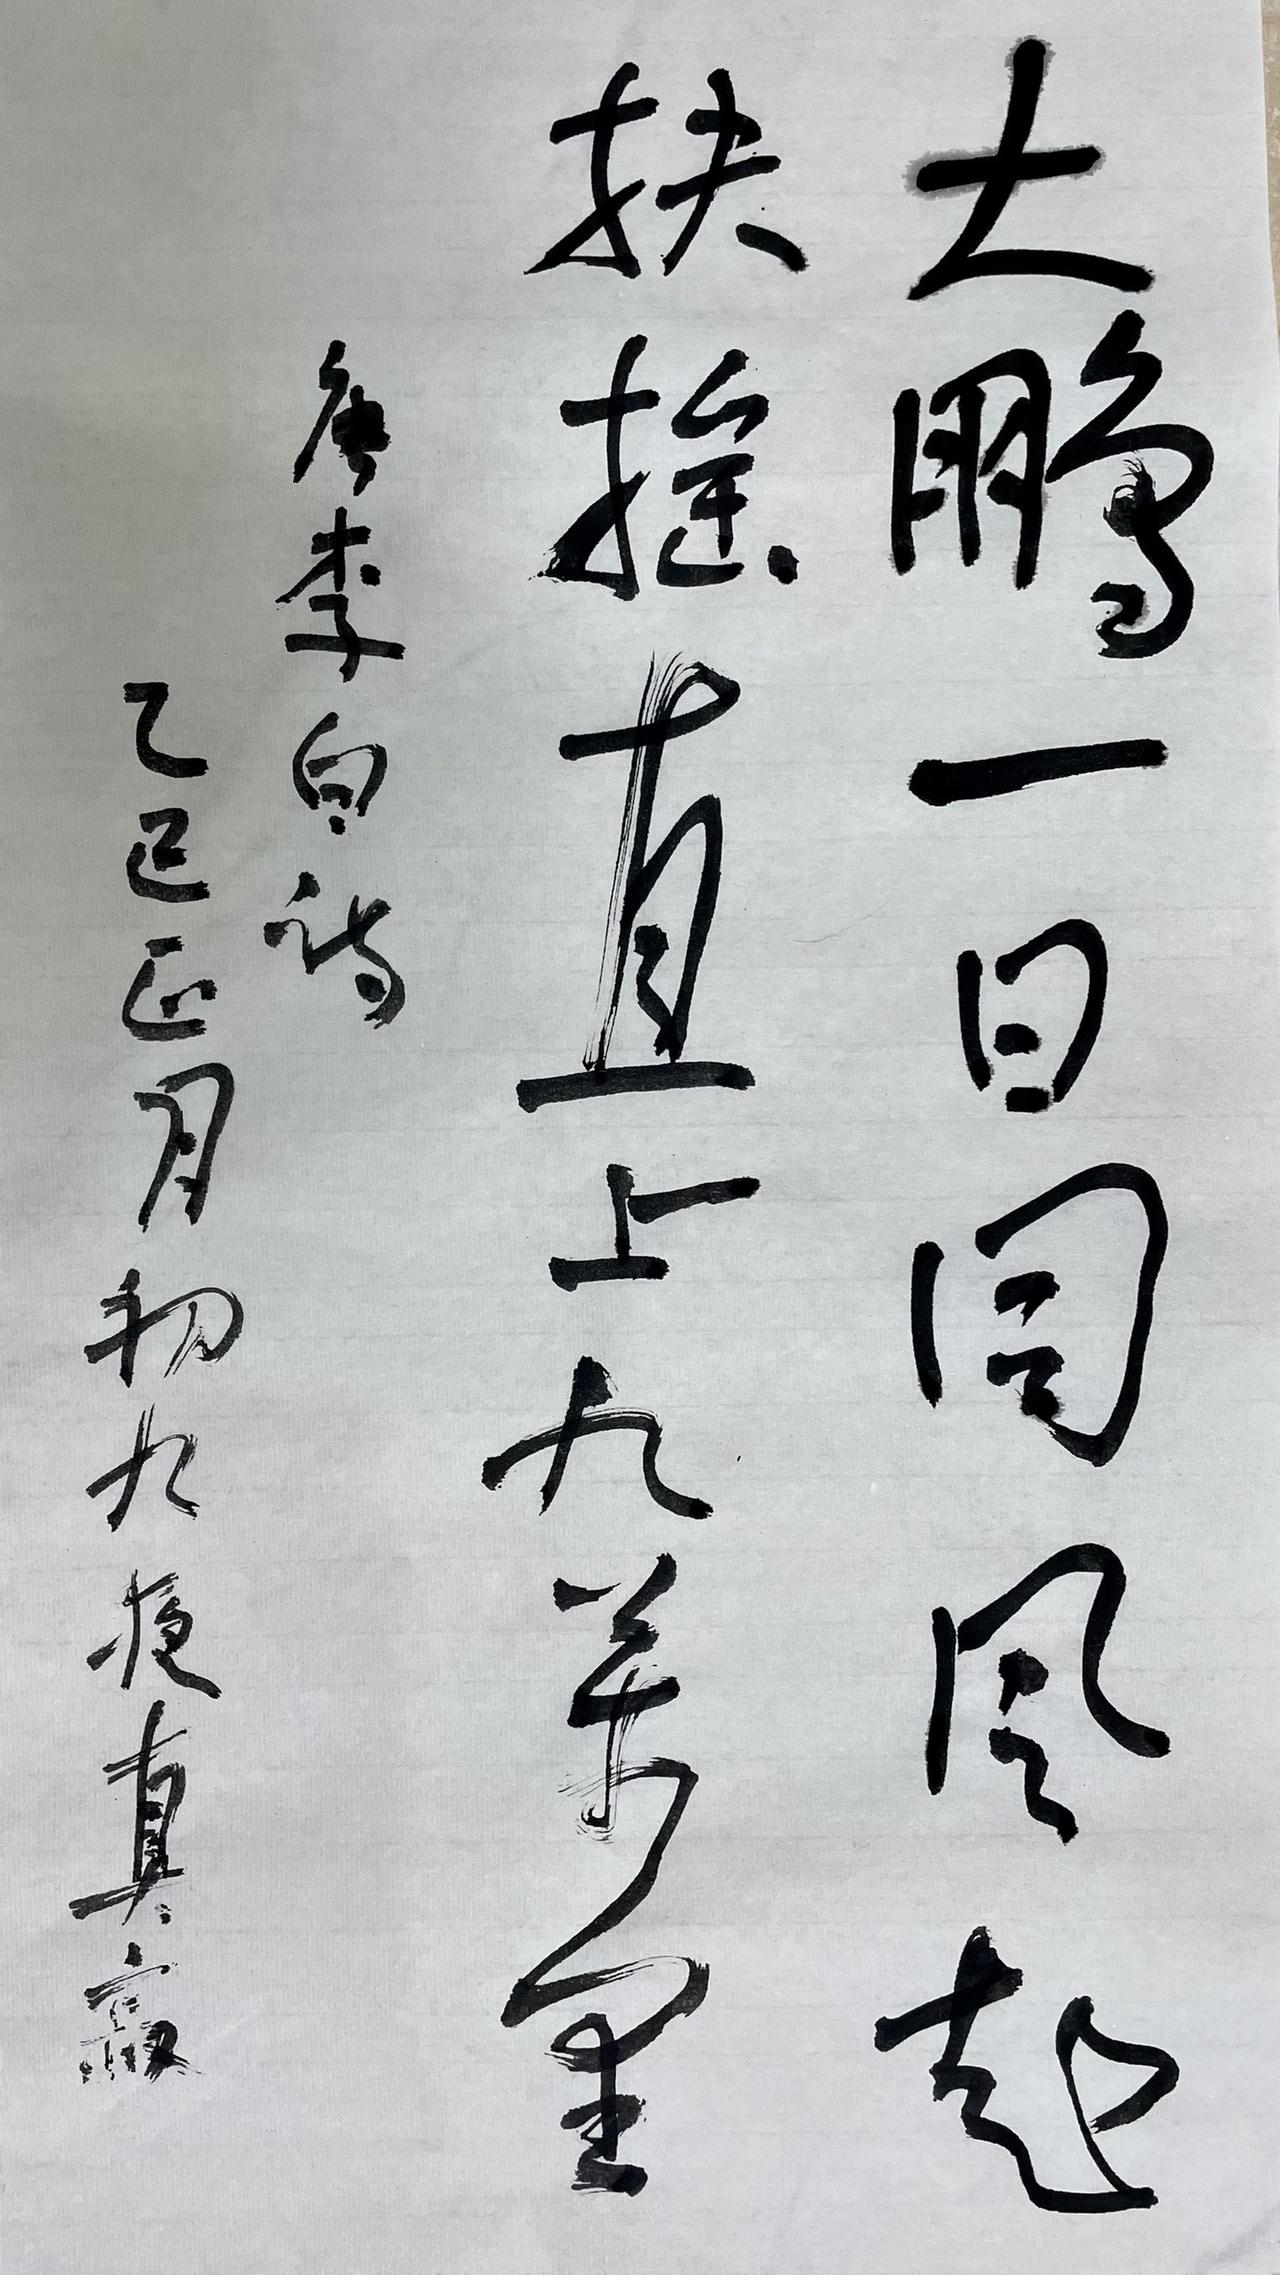 大鹏一日同风起
扶摇直上九萬里
唐李白诗
乙巳正月初九夜真寂